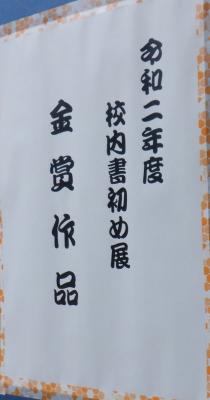 令和二年度
校内書初め展
金賞作品